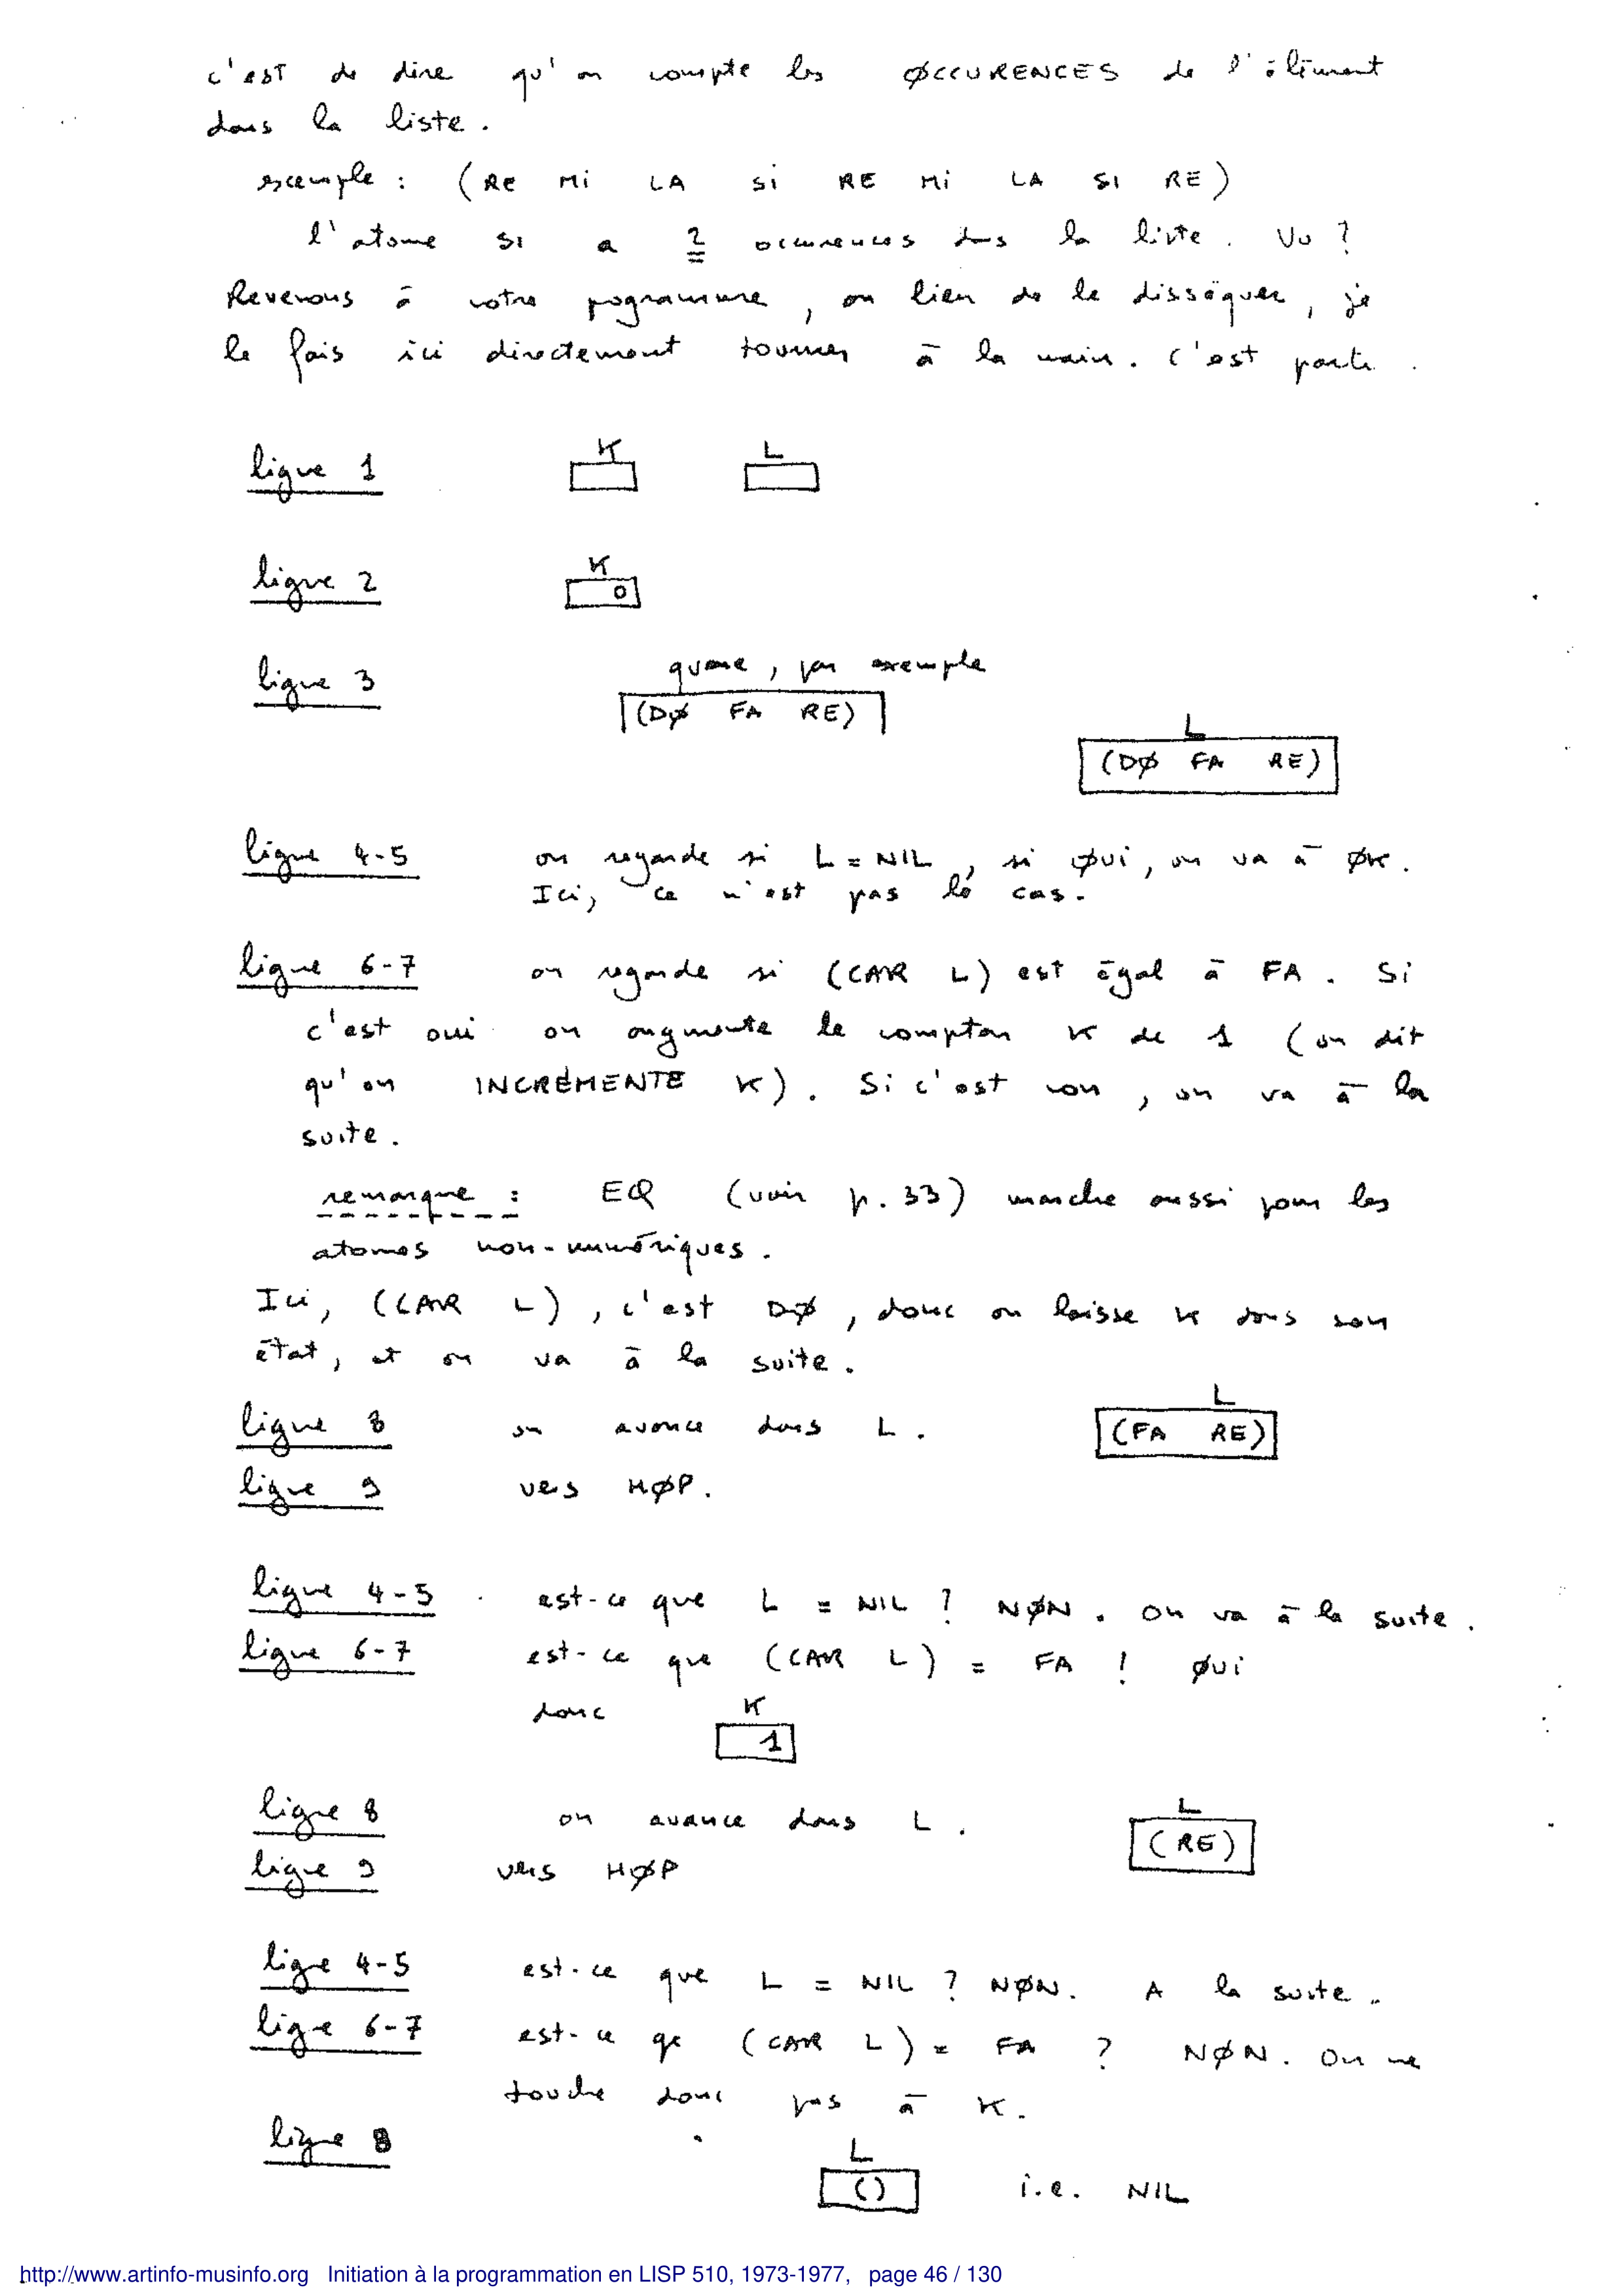 c'est de dire qu'on compte les ØCCURENCES de l'élément
dans la liste.
exemple : (RE Mi LA Si RE Mi LA SI RE)
l'atome SI a 2 occurences dans la liste. Vu ?
Revenons à votre pogramme, au lieu de le disséquer, je
le fais ici directement tourner à la main. C'est parti.
ligne 1 K L
ligne 2 K
0
ligne 3 quone, par exemple
(DØ FA RE)
L
(DØ FA RE)
ligne 4-5 on regarde si L = NIL, si ØUi, on va à ØK.
Ici, ce n'est pas le cas.
ligne 6-7 on regarde si (CAR L) est égal à FA. Si
c'est oui on augmente le compteur K de 1 (on dit
qu'on INCRÉMENTE K). Si c'est non, on va à la
suite.
remarque : EQ (voir p. 33) marche aussi pour les
atomes non-numériques.
Ici, (CAR L), c'est DØ, donc on laisse K dans son
état, et on va à la suite.
ligne 8 on avance dans L. L
(FA RE)
ligne 9 vers HØP.
ligne 4-5 est-ce que L = NIL ? NØN. On va à la suite.
ligne 6-7 est-ce que (CAR L) = FA ! ØUi
donc K
1
ligne 8 on avance dans L. L
(RE)
ligne 9 vers HØP
ligne 4-5 est-ce que L = NIL ? NØN. A la suite.
ligne 6-7 est-ce qe (CAR L) = FA ? NØN. On ne
touche donc pas à K.
ligne 8 L
() i.e. NIL
http://www.artinfo-musinfo.org Initiation à la programmation en LISP 510, 1973-1977, page 46 / 130